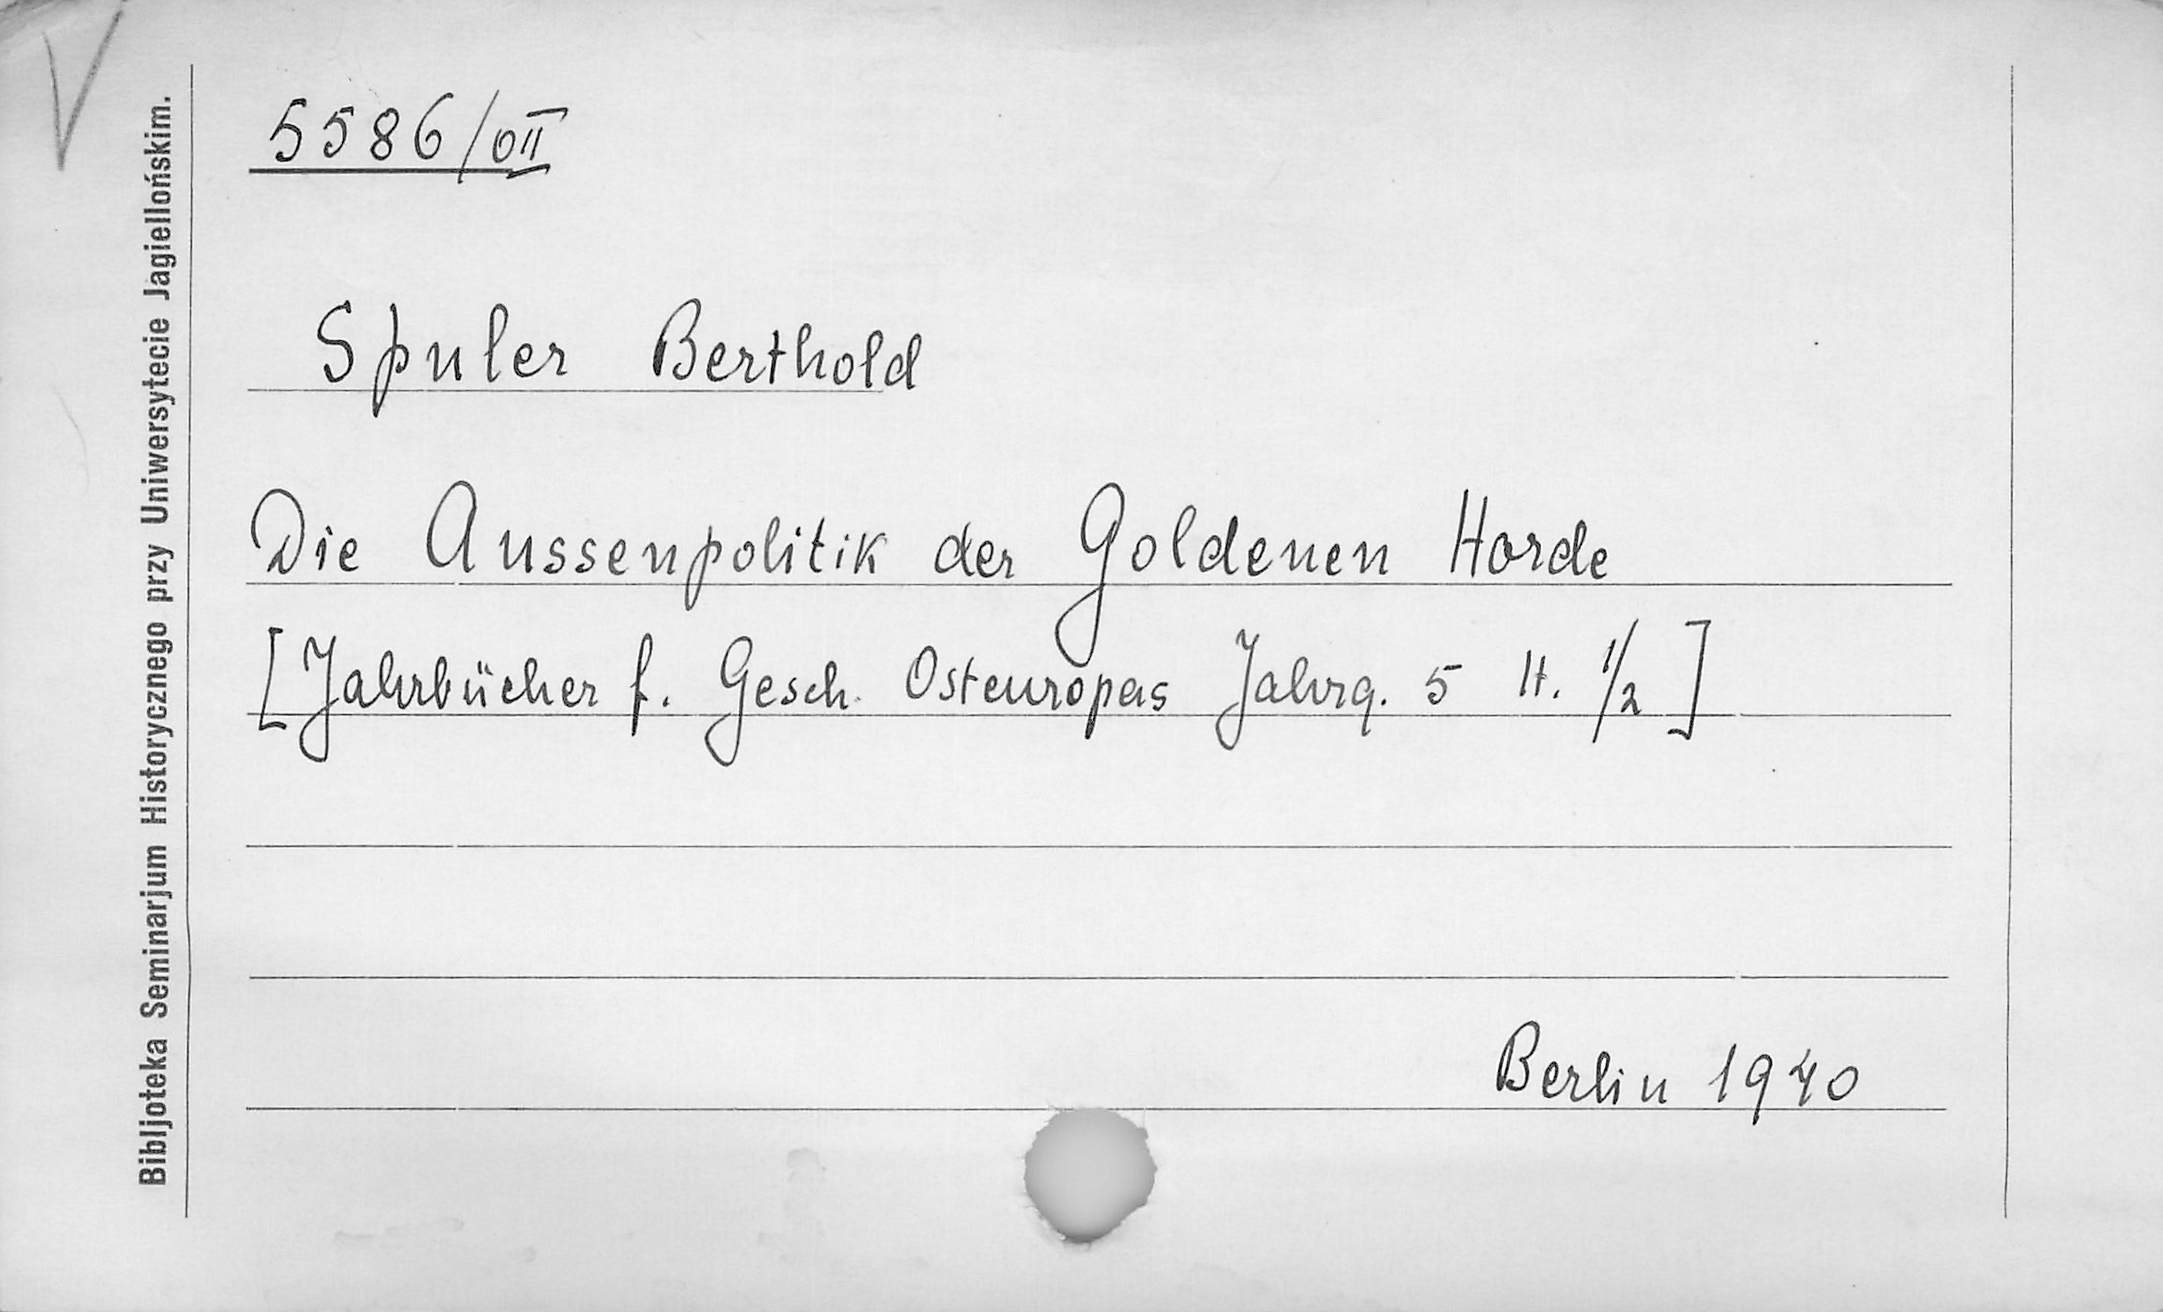 5586/OII
Spuler Berthold
Die Aussenpolitik der Goldenen Horde
[Jahrbücher f. Gesch. Osteuropas Jahrg. 5 H. 1/2]
Berlin 1940
Bibljoteka Seminarjum Historycznego przy Uniwersytecie Jagiellońskim.